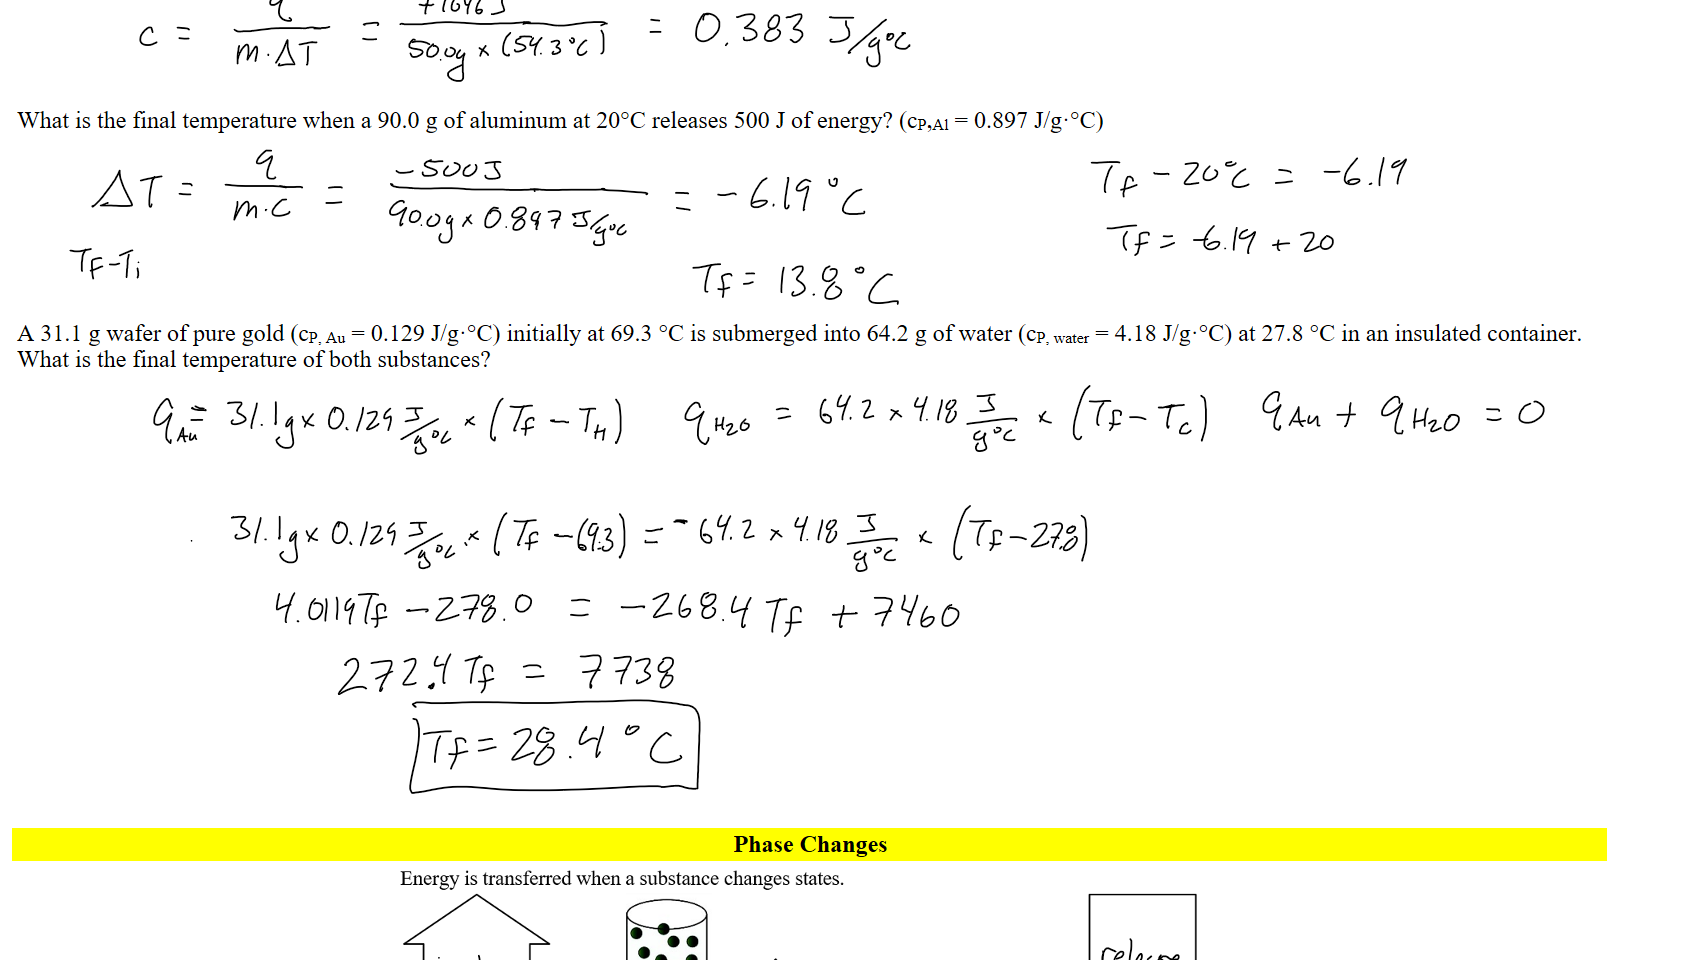 c = q / m·ΔT = +1046 J / 50.0g × (54.3°C) = 0.383 J/g°C
What is the final temperature when a 90.0 g of aluminum at 20°C releases 500 J of energy? (cP,Al = 0.897 J/g·°C)
ΔT = q / m·C = -500J / 90.0g × 0.897 J/g°C = -6.19 °C
TF-Ti
Tf = 13.8 °C
Tf - 20°C = -6.19
Tf = -6.19 + 20
A 31.1 g wafer of pure gold (cP, Au = 0.129 J/g·°C) initially at 69.3 °C is submerged into 64.2 g of water (cP, water = 4.18 J/g·°C) at 27.8 °C in an insulated container.
What is the final temperature of both substances?
qAu = 31.1g × 0.129 J/g°C × (Tf - TH) qH2O = 64.2 × 4.18 J/g°C × (Tf - Tc) qAu + qH2O = 0
31.1g × 0.129 J/g°C × (Tf - 69.3) = -64.2 × 4.18 J/g°C × (Tf - 27.8)
4.0119Tf - 278.0 = -268.4 Tf + 7460
272.4 Tf = 7738
Tf = 28.4 °C
Phase Changes
Energy is transferred when a substance changes states.
release